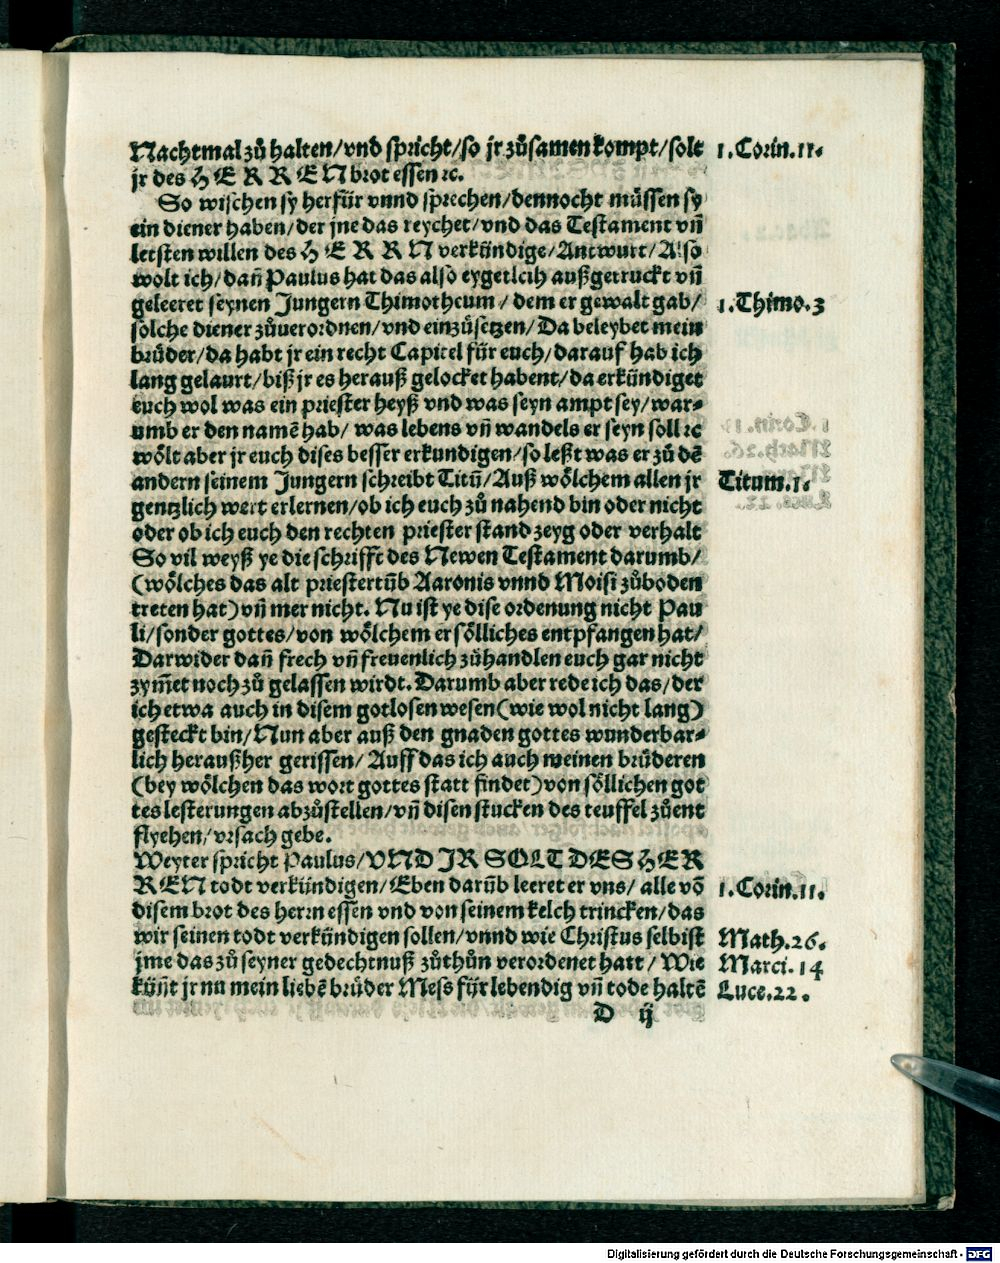 Nachtmal zů halten/vnd spricht/so jr zůsamen kompt/solt 1. Corin. 11.
jr des HERREN brot essen ⁊c.
So wischen sy herfür vnnd sprechen/dennocht müssen sy
ein diener haben/der jne das reychet/vnd das Testament vñ
letsten willen des HERRN verkündige/Antwurt/Also
wolt ich/dañ Paulus hat das also eygetlcih außgetruckt vñ
geleeret seynen Jungern Thimotheum/dem er gewalt gab/ 1. Thimo. 3
solche diener zůuerordnen/vnd einzůsetzen/Da beleybet mein
brůder/da habt jr ein recht Capitel für euch/darauf hab ich
lang gelaurt/biß jr es herauß gelocket habent/da erkündiget
euch wol was ein priester heyß vnd was seyn ampt sey/war⸗
umb er den namẽ hab/ was lebens vñ wandels er seyn soll ⁊c
wölt aber jr euch dises besser erkundigen/so leßt was er zů dẽ
andern seinem Jungern schreibt Titũ/Auß wölchem allen jr Titum. 1.
gentzlich wert erlernen/ob ich euch zů nahend bin oder nicht
oder ob ich euch den rechten priester stand zeyg oder verhalt
So vil weyß ye die schrifft des Newen Testament darumb/
(wölches das alt priestertũb Aaronis vnnd Moisi zůboden
treten hat)vñ mer nicht. Nu ist ye dise ordenung nicht Pau
li/sonder gottes/von wölchem er sölliches entpfangen hat/
Darwider dañ frech vñ freuenlich zůhandlen euch gar nicht
zym̃et noch zů gelassen wirdt. Darumb aber rede ich das/der
ich etwa auch in disem gotlosen wesen(wie wol nicht lang)
gesteckt bin/Nun aber auß den gnaden gottes wunderbar⸗
lich heraußher gerissen/Auff das ich auch meinen brüderen
(bey wölchen das wort gottes statt findet)von söllichen got
tes lesterungen abzůstellen/vñ disen stucken des teuffel zůent
flyehen/vrsach gebe.
Weyter spricht Paulus/VND JR SOLT DES HER
REN todt verkündigen/Eben darũb leeret er vns/ alle võ 1. Corin. 11.
disem brot des herrn essen vnd von seinem kelch trincken/das
wir seinen todt verkündigen sollen/vnnd wie Christus selbist Math. 26.
jme das zů seyner gedechtnuß zůthůn verordenet hatt/Wie Marci. 14
künt jr nu mein liebẽ brůder Mess für lebendig vñ tode haltẽ Luce. 22.
D ij
Digitalisierung gefördert durch die Deutsche Forschungsgemeinschaft - DFG